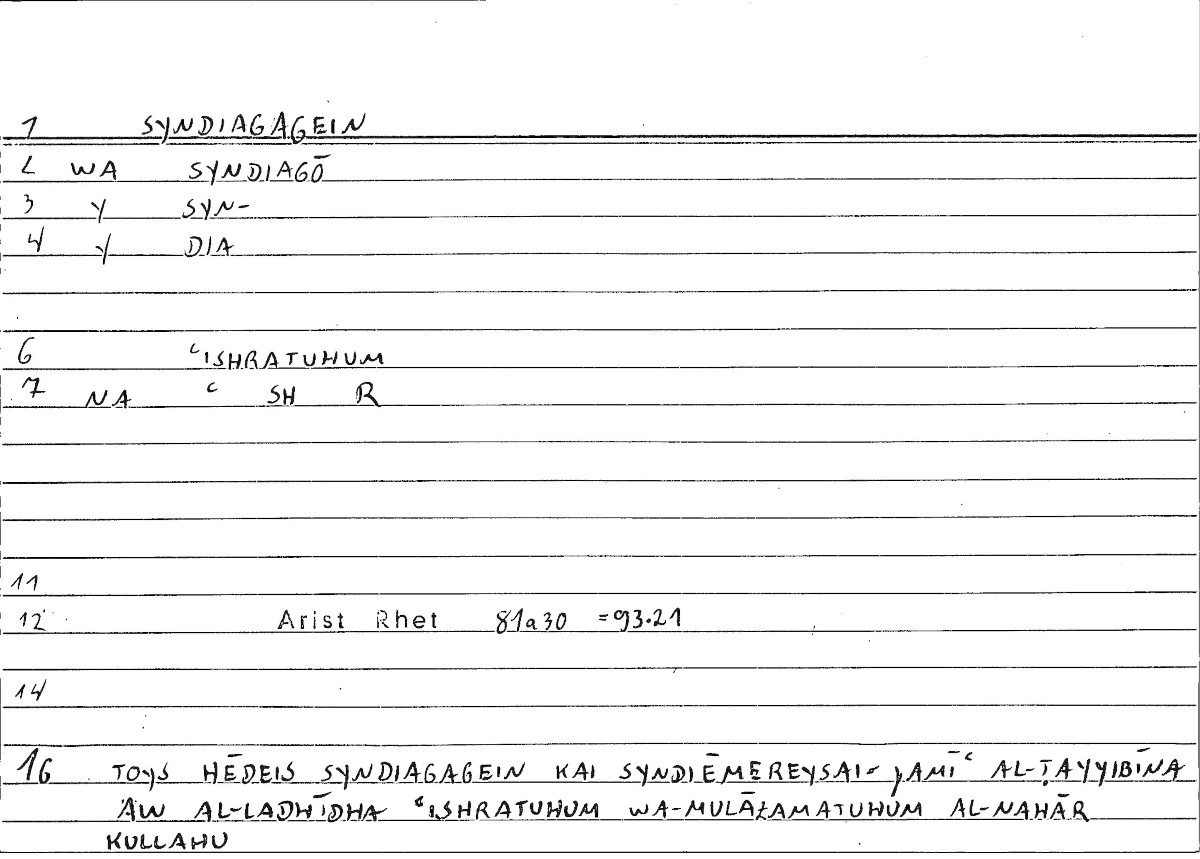 1 SYNDIAGAGEIN
2 WA SYNDIAGŌ
3 Y SYN-
4 Y DIA
6 ʿISHRATUHUM
7 NA ʿ SH R
11
12 Arist Rhet 81a30 =93.21
14
16 TOYS HĒDEIS SYNDIAGAGEIN KAI SYNDIĒMEREYSAI- AL-ṬAYYIBĪNA
AW AL-LADHĪDHA ʿISHRATUHUM WA-MULĀZAMATUHUM AL-NAHĀR
KULLAHU